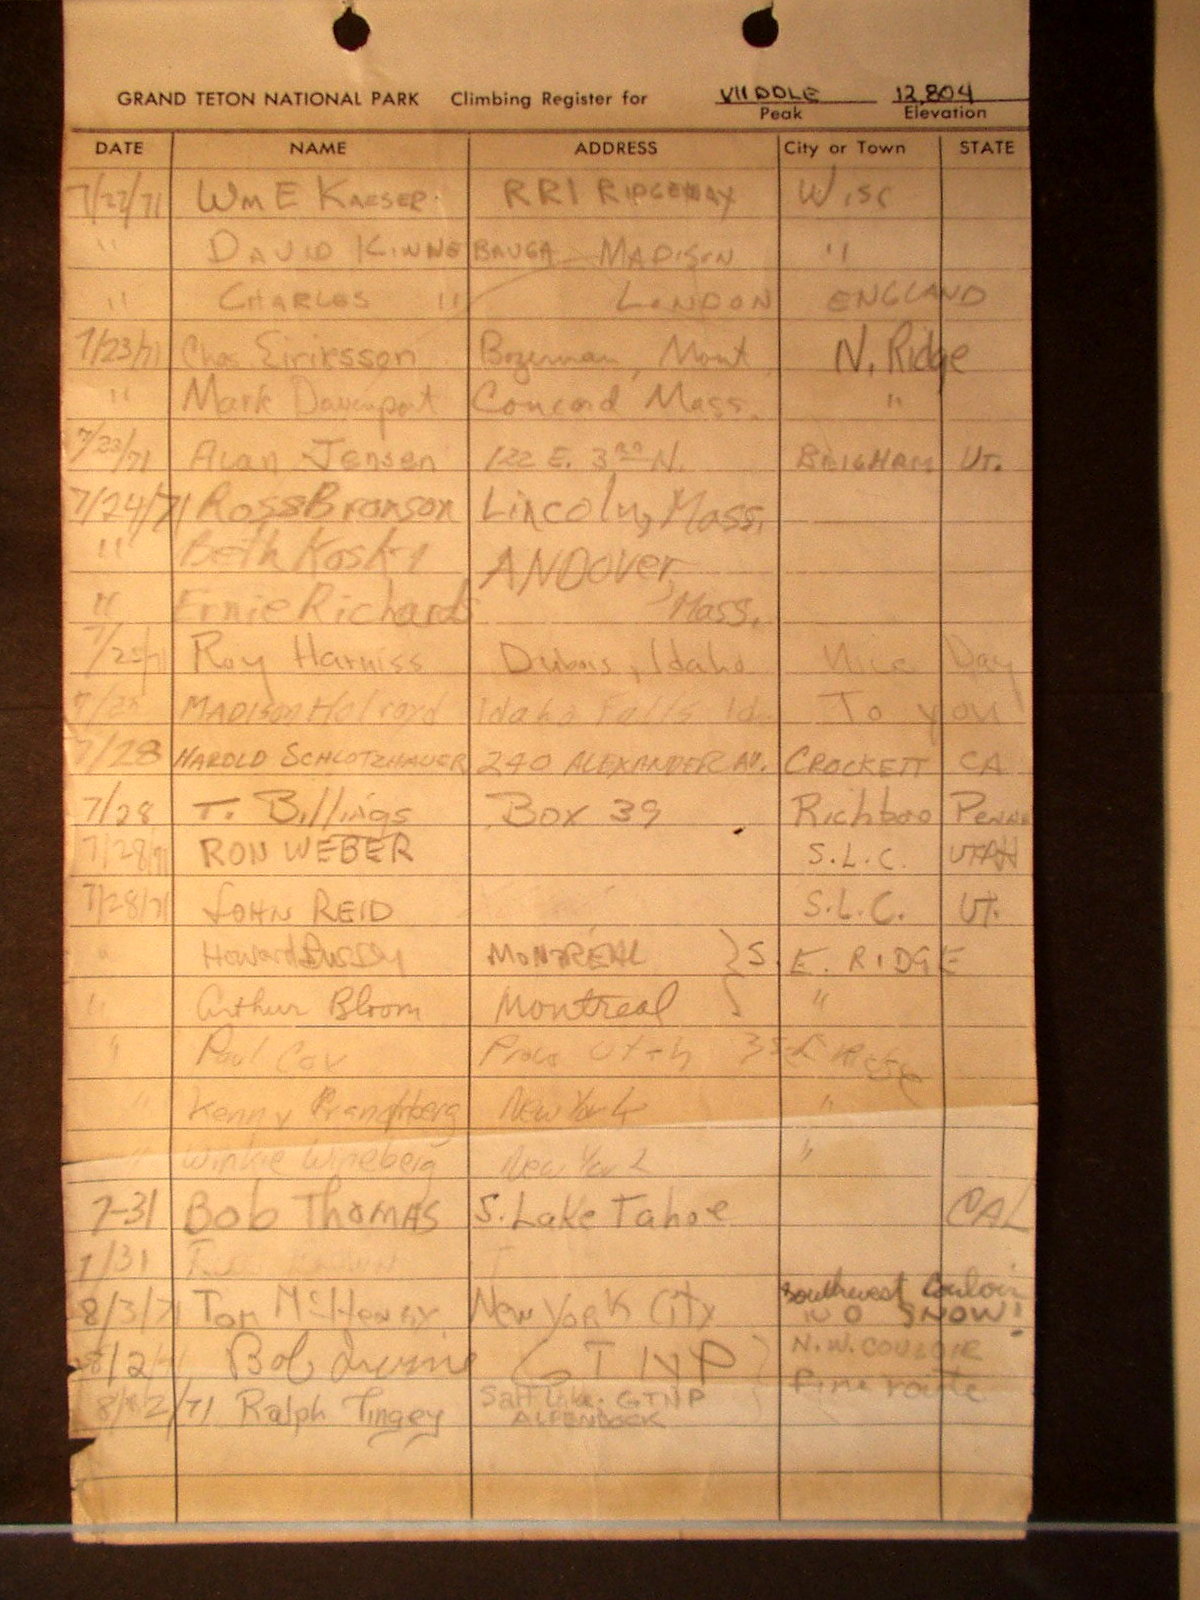 GRAND TETON NATIONAL PARK Climbing Register for MIDDLE 12,804
Peak Elevation
DATE NAME ADDRESS City or Town STATE
7/22/71 Wm E Kaeser RR1 RIDGEWAY Wisc
" DAVID KINNEBAUGA MADISON "
" CHARLES " LONDON ENGLAND
7/23/71 Chas Eiriksson Bozeman, Mont. N. Ridge
" Mark Davenport Concord Mass. "
7/23/71 Alan Jensen 122 E. 3RD N. BRIGHAM UT.
7/24/71 Ross Branson Lincoln, Mass.
" Beth Koski ANDOVER,
" Ernie Richards Mass.
7/25/71 Roy Harniss Dubois, Idaho Nice Day
7/25 MADISON Holroyd Idaho Falls Id. To you
7/28 HAROLD SCHLOTZHAUER 240 ALEXANDER AV. CROCKETT CA
7/28 T. Billings Box 39 Richboro PENNA
7/28/71 RON WEBER S.L.C. UTAH
7/28/71 JOHN REID S.L.C. UT.
" Howard MONTREAL } S. E. RIDGE
" Arthur Bloom Montreal } "
" Paul Cox Provo Utah
" Kenny New York "
" Winkie Wineberg New York "
7-31 Bob Thomas S. Lake Tahoe CAL
7/31
8/3/71 Tom McHenry New York City Southwest Couloir
NO SNOW!
8/2/71 Bob Irvine GTNP } N.W. COULOIR
fine route
8/2/71 Ralph Tingey Salt Lake. GTNP
ALPENBOCK